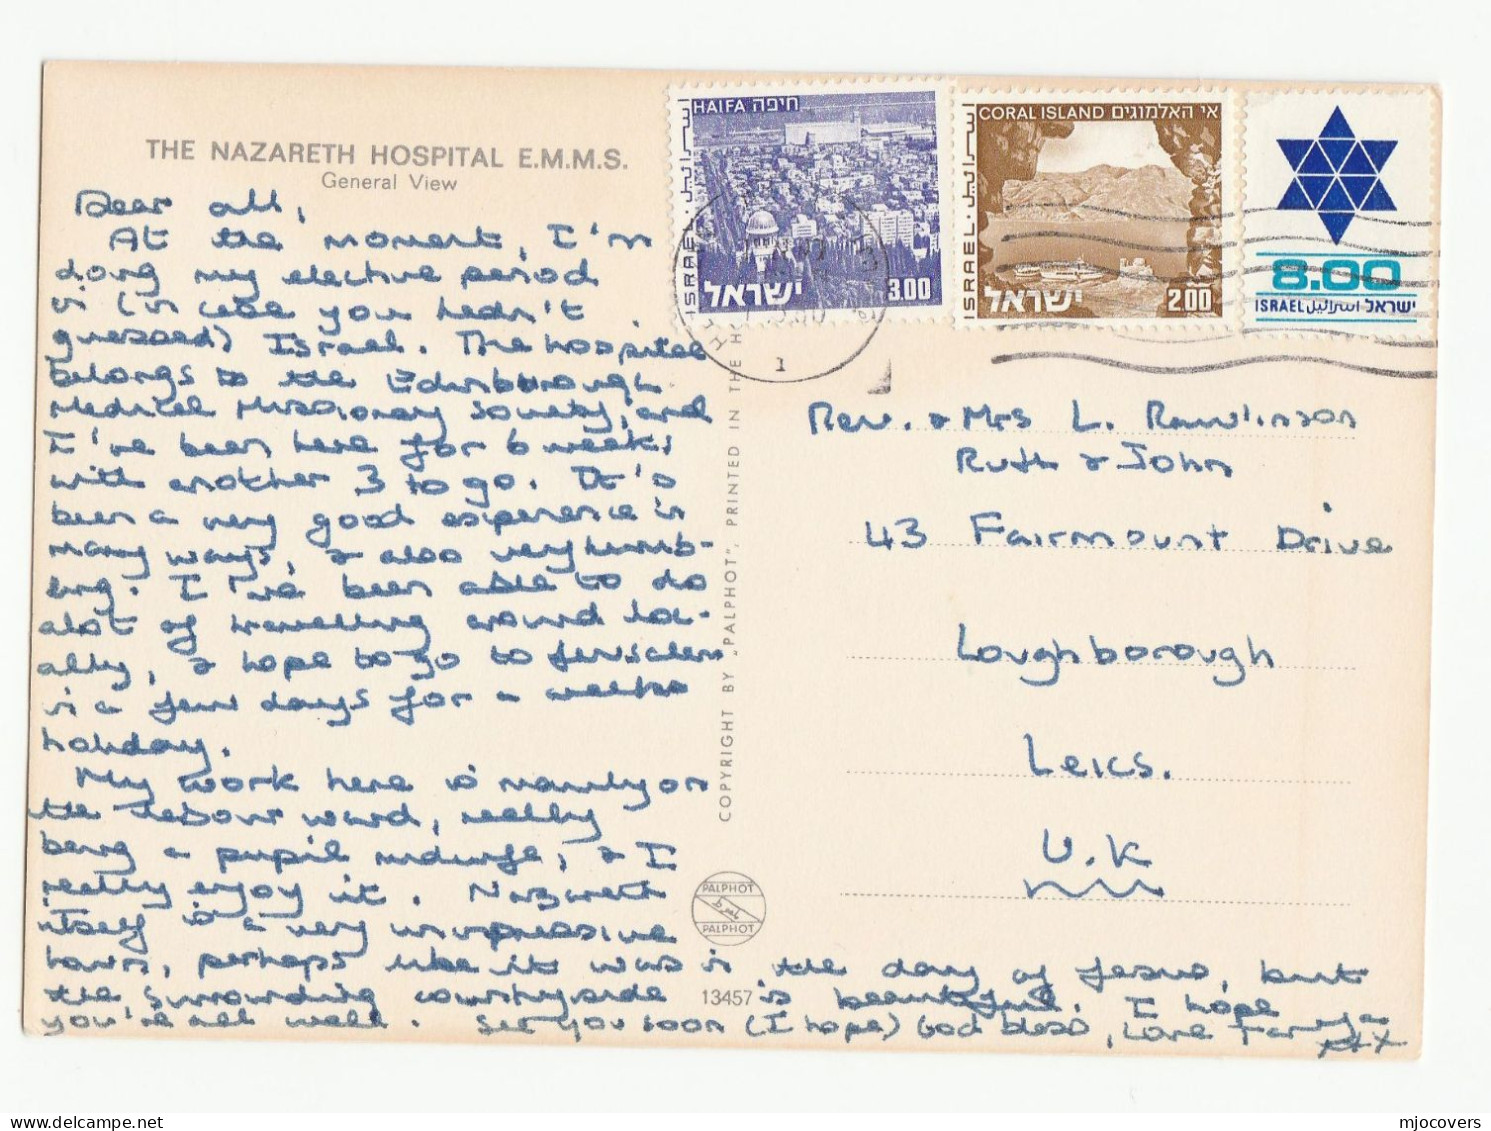 THE NAZARETH HOSPITAL E.M.M.S.
General View
Dear all,
At the moment, I'm
doing my elective period
in (in case you hadn't
guessed) Israel. The hospital
belongs to the Edinborough
Medical Missionary Society, and
I've been here for 6 weeks
with another 3 to go. It's
been a very good experience in
many ways, & also very humb-
ling. I've been able to do
alot of travelling around lo-
cally, & hope to go to Jerusalem
in a few days for a weeks
holiday.
My work here is mainly on
the labour ward, really
being a pupil midwife, & I
really enjoy it. Nazareth
itself is a very unimpressive
town, perhaps like it was in the day of Jesus, but
the surrounding countryside is beautiful. I hope
you're all well. See you soon (I hope) God bless, Love
xxx
COPYRIGHT BY "PALPHOT", PRINTED IN THE
PALPHOT
PALPHOT
13457
HAIFA חיפה
ISRAEL · اسرائيل
ישראל 3.00
CORAL ISLAND אי האלמוגים
ISRAEL · اسرائيل
ישראל 2.00
8.00
ISRAEL اسرائيل ישראל
1
Rev. & Mrs L. Rawlinson
Ruth & John
43 Fairmount Drive
Loughborough
Leics.
U.K
mjocovers